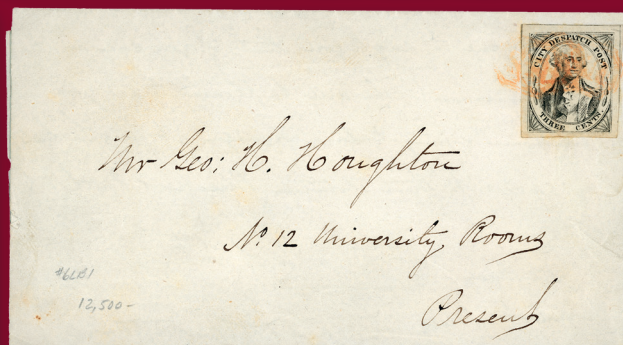 CITY DESPATCH POST
THREE CENTS
Mr Geo: H. Houghton
No 12 University Rooms
Present
#6LB1
12,500-